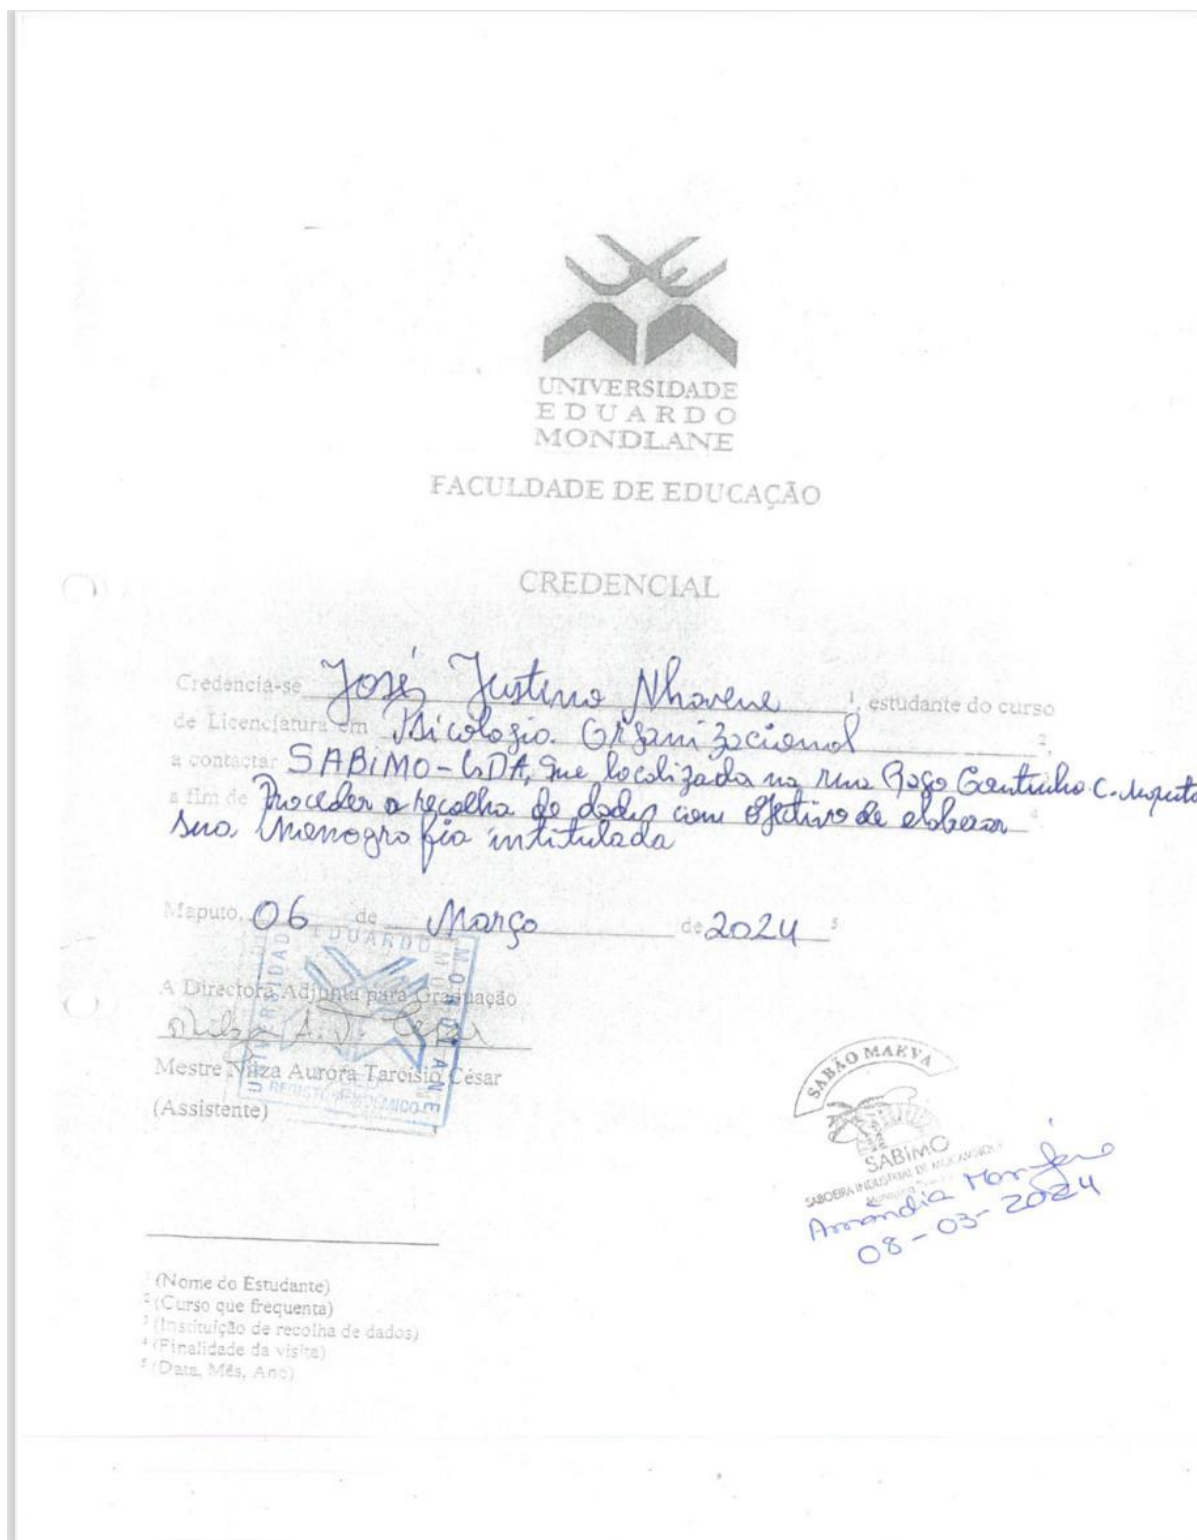 UNIVERSIDADE
EDUARDO
MONDLANE
FACULDADE DE EDUCAÇÃO
CREDENCIAL
Credencia-se José Justino Nhavene ¹, estudante do curso
de Licenciatura em Psicologia Organizacional ²,
a contactar SABiMO-LDA, que localizada na rua Gago Coutinho C. Maputo
a fim de Proceder a recolha de dados com objectivo de elaborar ⁴
sua monografia intitulada
Maputo, 06 de Março de 2024 ⁵
A Directora Adjunta para Graduação
Mestre Nilza Aurora Tarcísio César
(Assistente)
UNIVERSIDADE EDUARDO MONDLANE
REGISTO ACADÉMICO
SABÃO MAEVA
SABIMO
SABOEIRA INDUSTRIAL DE MOÇAMBIQUE
08-03-2024
¹ (Nome do Estudante)
² (Curso que frequenta)
³ (Instituição de recolha de dados)
⁴ (Finalidade da visita)
⁵ (Data, Mês, Ano)